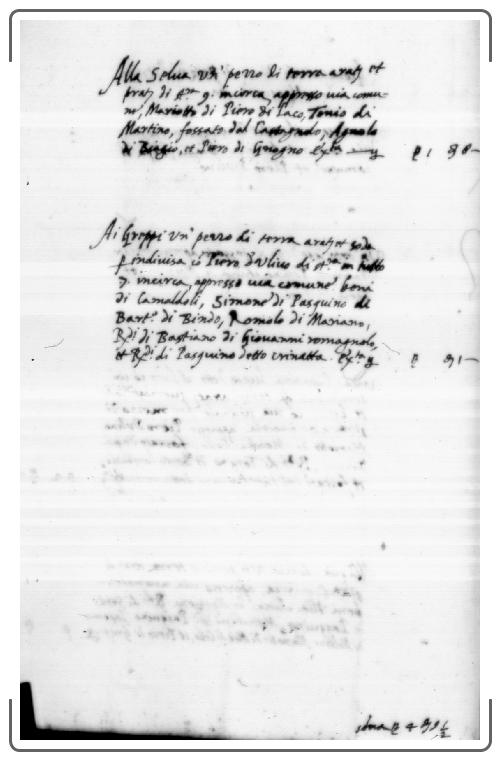 Alla Selva un' pezzo di terra arat. et
prat. di st. 9. incirca appresso via comu-
ne, Mariotto di Piero di Paco, Tonio di
Martino, fossato dal Castagnolo, Agnolo
di Biagio, et Piero di Giogno
Ai Greppi un' pezzo di terra arat. et soda
p indivisa cō Piero d'Ulivo di st. in tutto
7. incirca, appresso via comune beni
di Camaldoli, Simone di Pasquino di
Bart.o di Bindo, Romolo di Mariano,
di Bastiano di Giovanni romagnolo,
et di Pasquino detto crinatta.